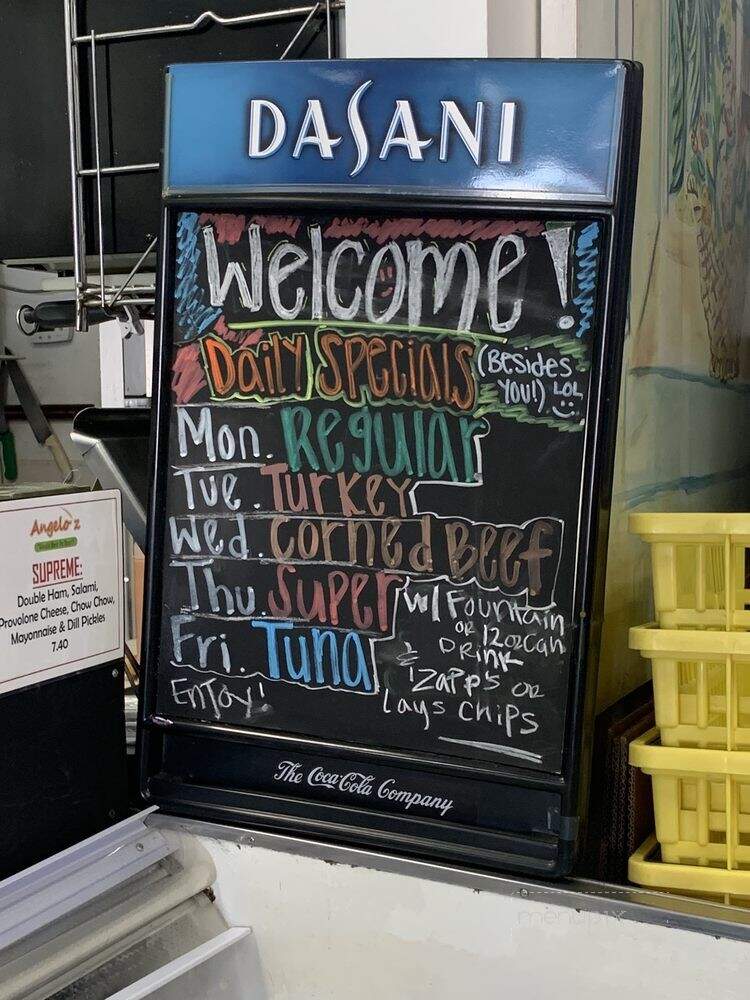 DASANI
Welcome!
Daily Specials (Besides
You!) LOL
Mon. Regular
Tue. Turkey
Wed. Corned Beef
Thu. Super
Fri. Tuna
Enjoy!
w/ Fountain
or 12oz Can
Drink
& Zapp's or
Lays Chips
The Coca-Cola Company
Angelo'z
SUPREME:
Double Ham, Salami,
Provolone Cheese, Chow Chow,
Mayonnaise & Dill Pickles
7.40